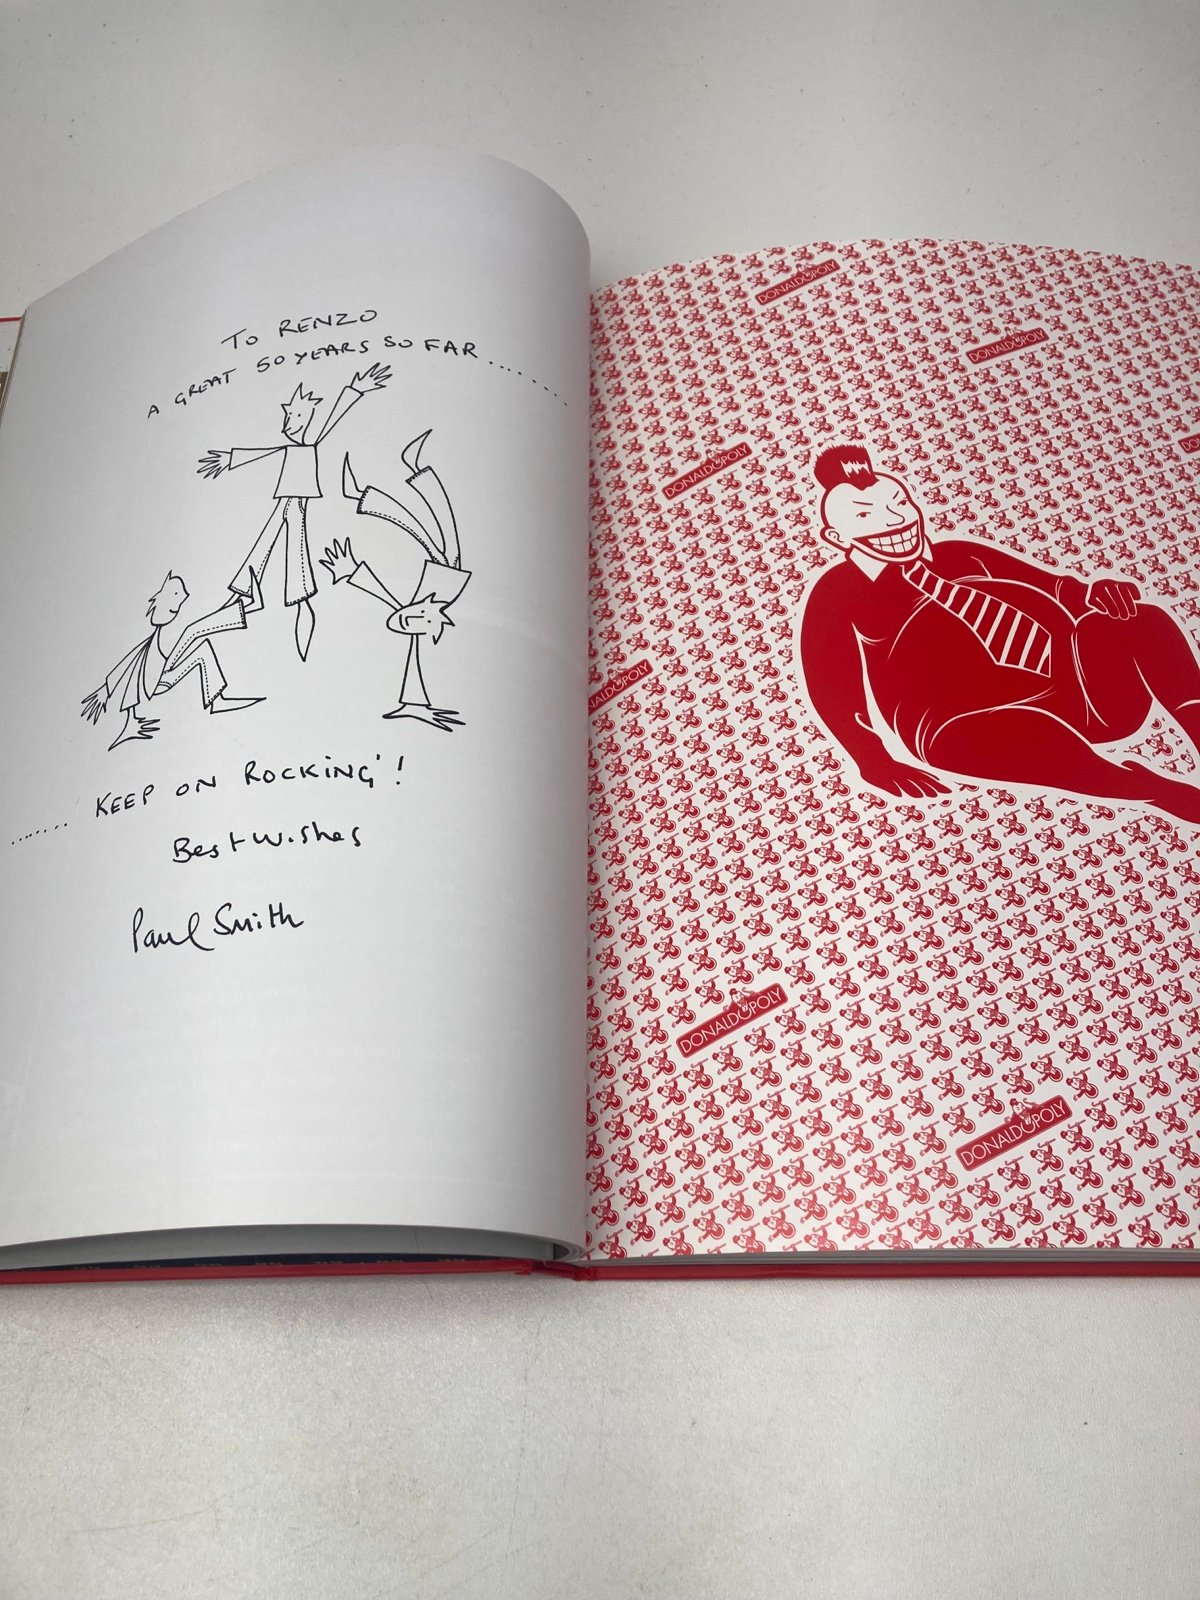 TO RENZO
A GREAT 50 YEARS SO FAR..........
....... KEEP ON ROCKING !
Best Wishes
Paul Smith
DONALDOPOLY
DONALDOPOLY
DONALDOPOLY
DONALDOPOLY
DONALDOPOLY